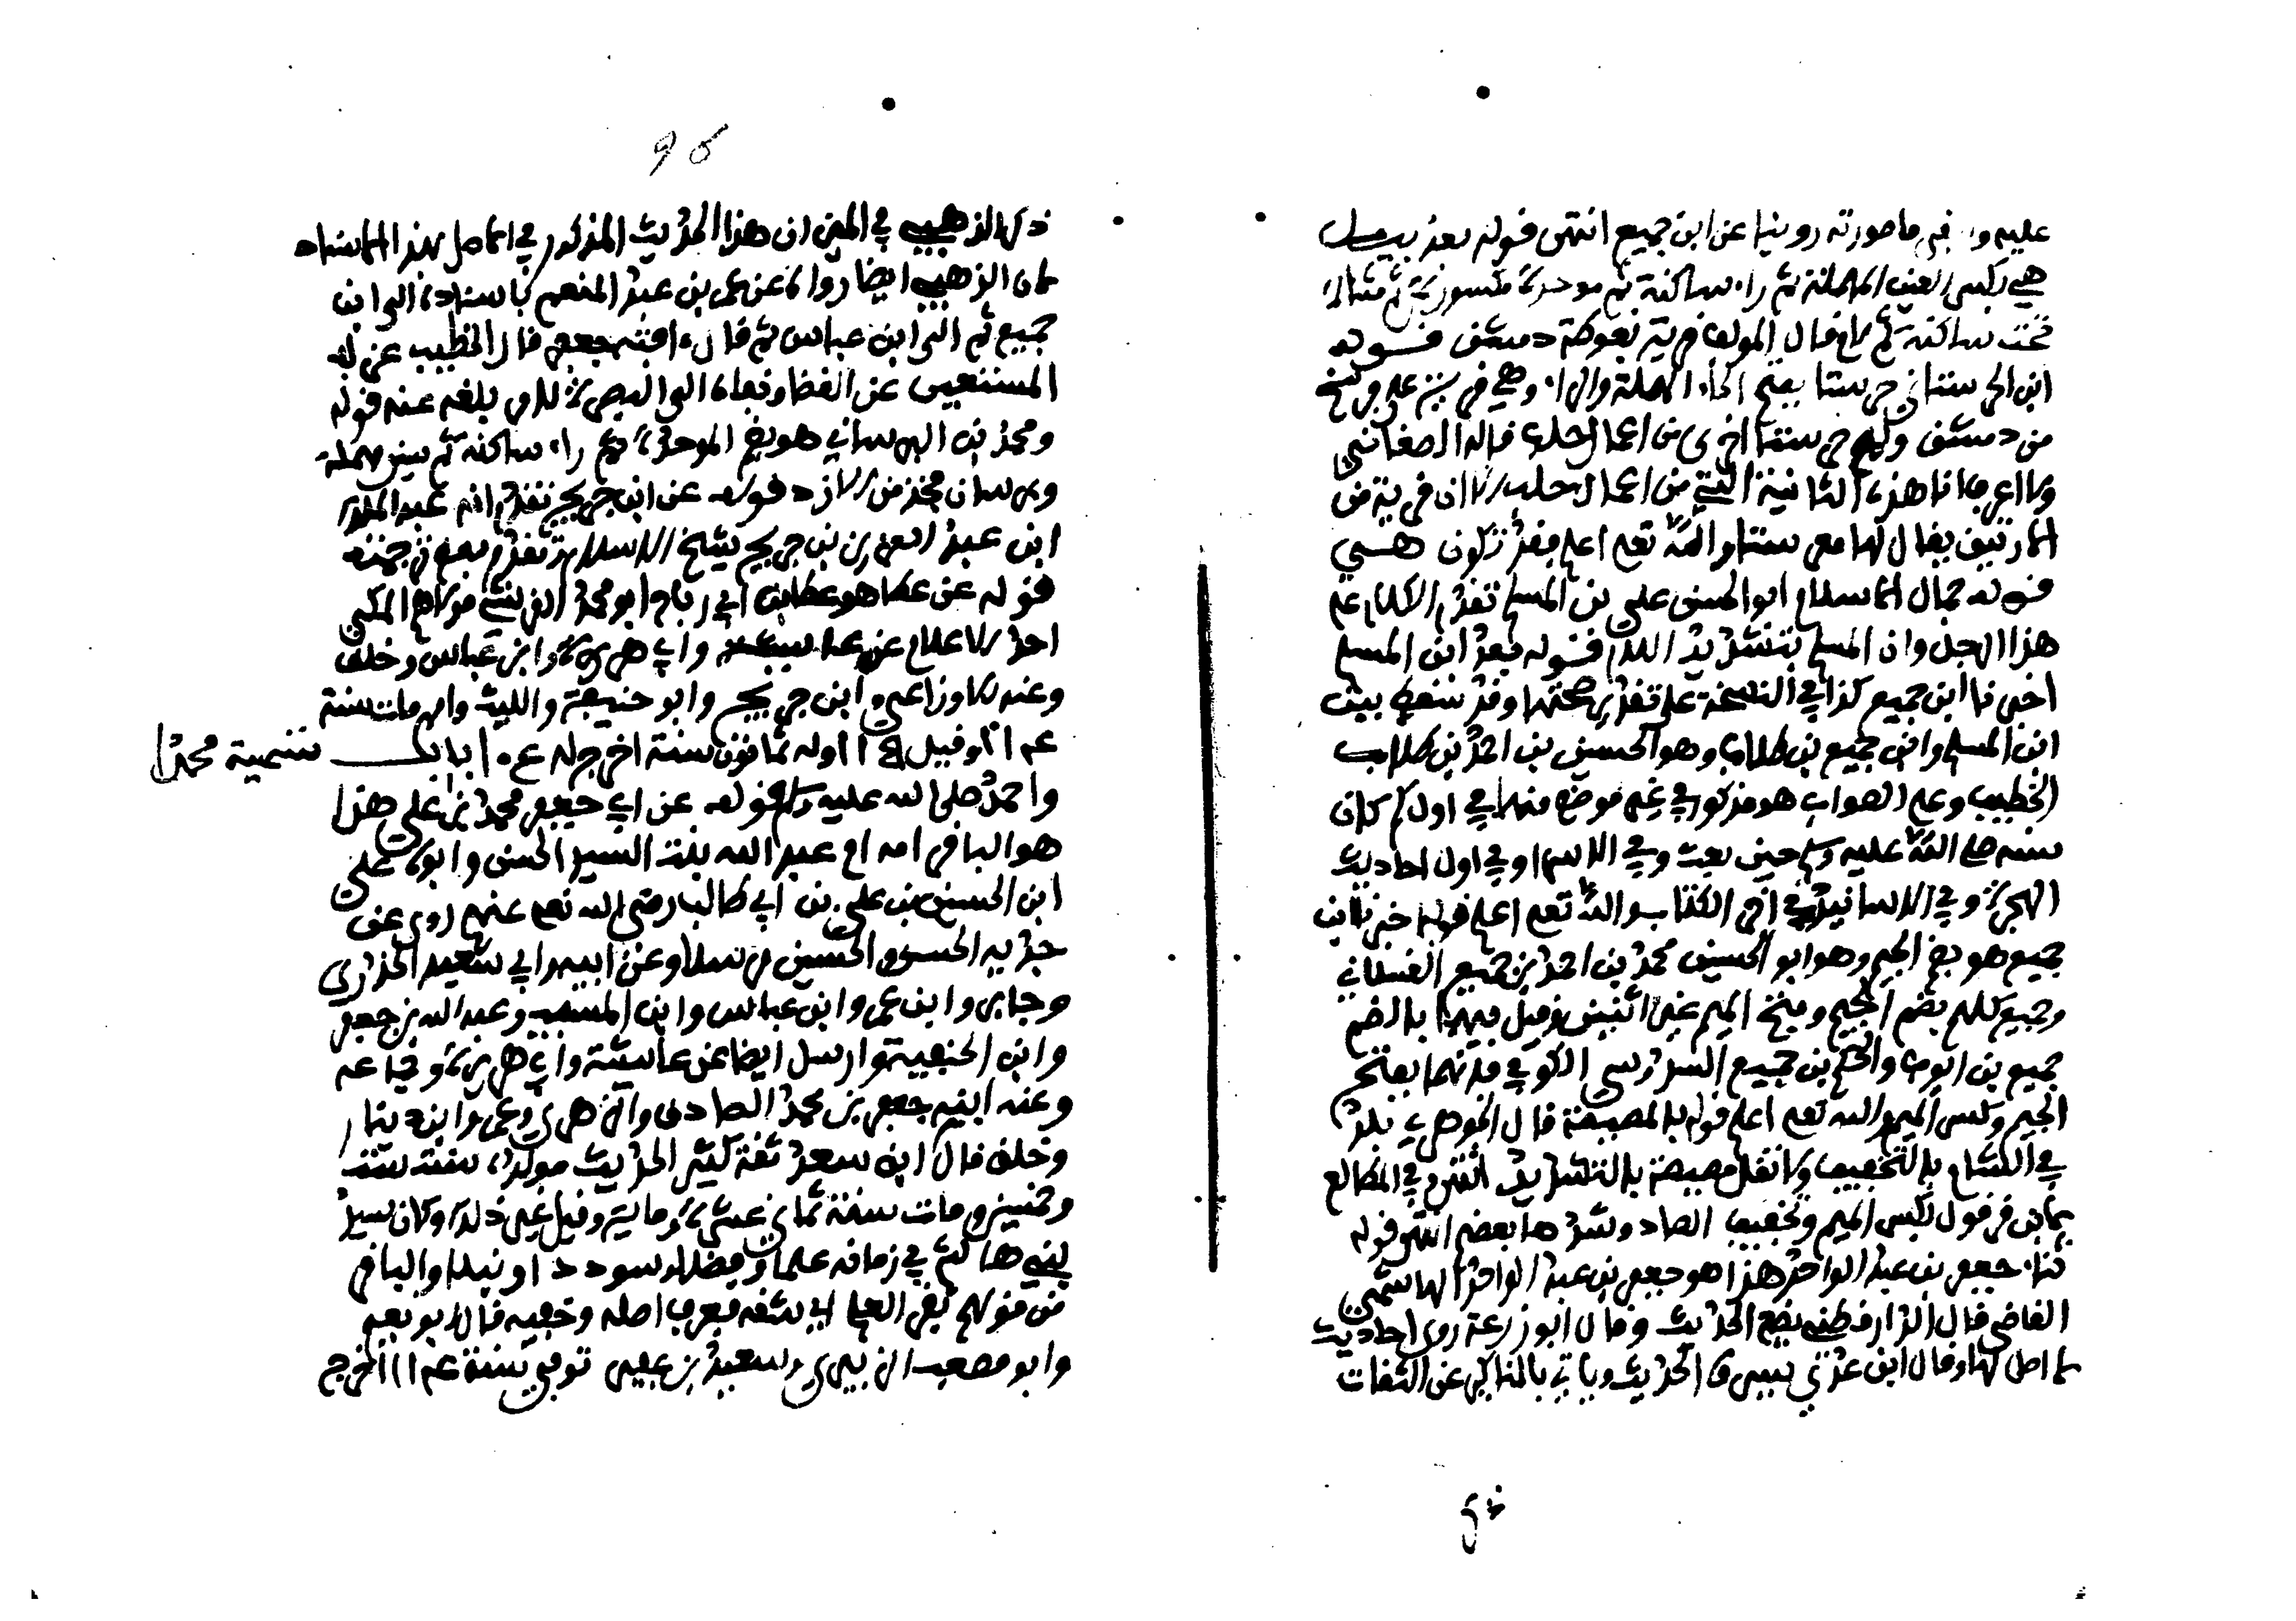 عليه و في ما صورته روينا عن ابن جميع انتهى قوله بعد بيسل
هي بكسر العين المهملة ثم راء ساكنة ثم موحدة مكسورة ثم مثناة
تحت ساكنة ثم قال المولف قرية بغوطة دمشق قوله
ابن الحرستاني حرستا بفتح الحاء المهملة والراء وهي قرية على فرسخ
من دمشق ولهم حرستا اخرى من اعمال حلب قاله الصغاني
ولا اعرف انا هذه الثانية التي من اعمال حلب الا ان قرية من
يقال لها معرستا والله تعلى اعلم فقد تكون هي
قوله جمال الاسلام ابو الحسن علي بن المسلم تقدم الكلام على
هذا الرجل وان المسلم بتشديد اللام قوله فعد ابن المسلم
اخبرنا ابن جميع كذا في النسخة على تقدير صحتها وقد سقط بين
ابن المسلم وابن جميع بن طلاب وهو الحسين بن احمد بن طلاب
الخطيب وعلى الصواب هو مذكور في غير موضع منها في اول كم كان
سنه صلى الله عليه وسلم حين بعث وفي الاسرا وفي اول احاديث
الهجرة وفي الاسانيد في اخر الكتاب والله تعلى اعلم قوله اخبرنا ابن
جميع هو بضم الجيم وهو ابو الحسين محمد بن احمد بن جميع الغساني
وجميع كلهم بضم الجيم وفتح الميم غير اثنين وقيل فيهما بالضم
جميع بن ثوب والحكم بن جميع السدوسي الكوفي فانهما بفتح
الجيم وكسر الميم والله تعلى اعلم قوله بالمصيصة قال الجوهري بلد
في الشام بالتخفيف ولا تقل مصيصة بالتشديد انتهى وفي المطالع
لابن قرقول بكسر الميم وتخفيف الصاد وشدها بعضهم انتهى قوله
ثنا جعفر بن عبد الواحد هذا هو جعفر بن عبد الواحد الهاشمي
القاضي قال الدارقطني يضع الحديث وقال ابو زرعة روى احاديث
لا اصل لها وقال ابن عدي يسرق الحديث وياتي بالمناكير عن الثقات
96
ذكر الذهبي في الميزان هذا الحديث المذكور في الاصل بهذا الاسناد
لان الذهبي ايضا رواه عن عمر بن عبد المنعم باسناده الى ابن
جميع ثم الى ابن عباس ثم قال افته جعفر قال الخطيب عزله
المستعين عن القضا ونفاه الى البصرة لامر بلغه عنه قوله
ومحمد بن البرساني هو بضم الموحدة ثم راء ساكنة ثم سين مهملة
وبرسان فخذ من الازد قوله عن ابن جريج تقدم انه عبد الملك
ابن عبد العزيز بن جريج شيخ الاسلام تقدم بعض ترجمته
قوله عن عطا هو عطا بن ابي رباح ابو محمد القرشي مولاهم المكي
احد الاعلام عن عايشة وابي هريرة وابن عباس وخلق
وعنه الاوزاعي وابن جريج وابو حنيفة والليث وامم مات سنة
عم ١١ وقيل ١١٥ وله ثمانون سنة اخرج له ع ٠ باب تسمية محمدا
واحمد صلى الله عليه وسلم قوله عن ابي جعفر محمد بن علي هذا
هو الباقر امه ام عبد الله بنت السيد الحسن وابوه علي
ابن الحسين بن علي بن ابي طالب رضي الله تعلى عنهم روى عن
جديه الحسن والحسين مرسلا وعن ابيه وابي سعيد الخدري
وجابر وابن عمر وابن عباس وابن المسيب وعبد الله بن جعفر
وابن الحنفية وارسل ايضا عن عايشة وابي هريرة وجماعة
وعنه ابنه جعفر بن محمد الصادق والزهري وعمرو بن دينار
وخلق قال ابن سعد ثقة كثير الحديث مولده سنة ست
وخمسين ومات سنة ثمان عشرة وماية وقيل غير ذلك وكان سيد
بني هاشم في زمانه علما وفضلا وسوددا ونبلا والباقر
من قولهم بقر العلم اي شقه فعرف اصله وخفيه قال ابو نعيم
وابو مصعب الزبيري وسعيد بن عفير توفي سنة عم ١١ اخرج